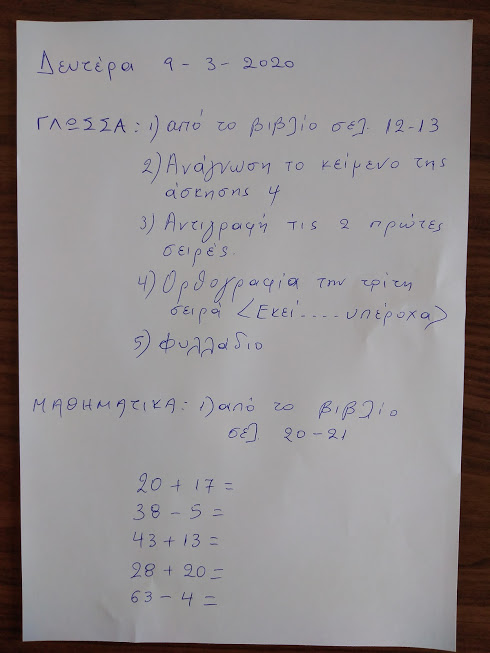 Δευτέρα 9-3-2020
ΓΛΩΣΣΑ: 1) από το βιβλίο σελ. 12-13
2) Ανάγνωση το κείμενο της
άσκησης 4
3) Αντιγραφή τις 2 πρώτες
σειρές.
4) Ορθογραφία την τρίτη
σειρά <Εκεί.....υπέροχα>
5) Φυλλάδιο
ΜΑΘΗΜΑΤΙΚΑ: 1) από το βιβλίο
σελ. 20-21
20 + 17 =
38 - 5 =
43 + 13 =
28 + 20 =
63 - 4 =